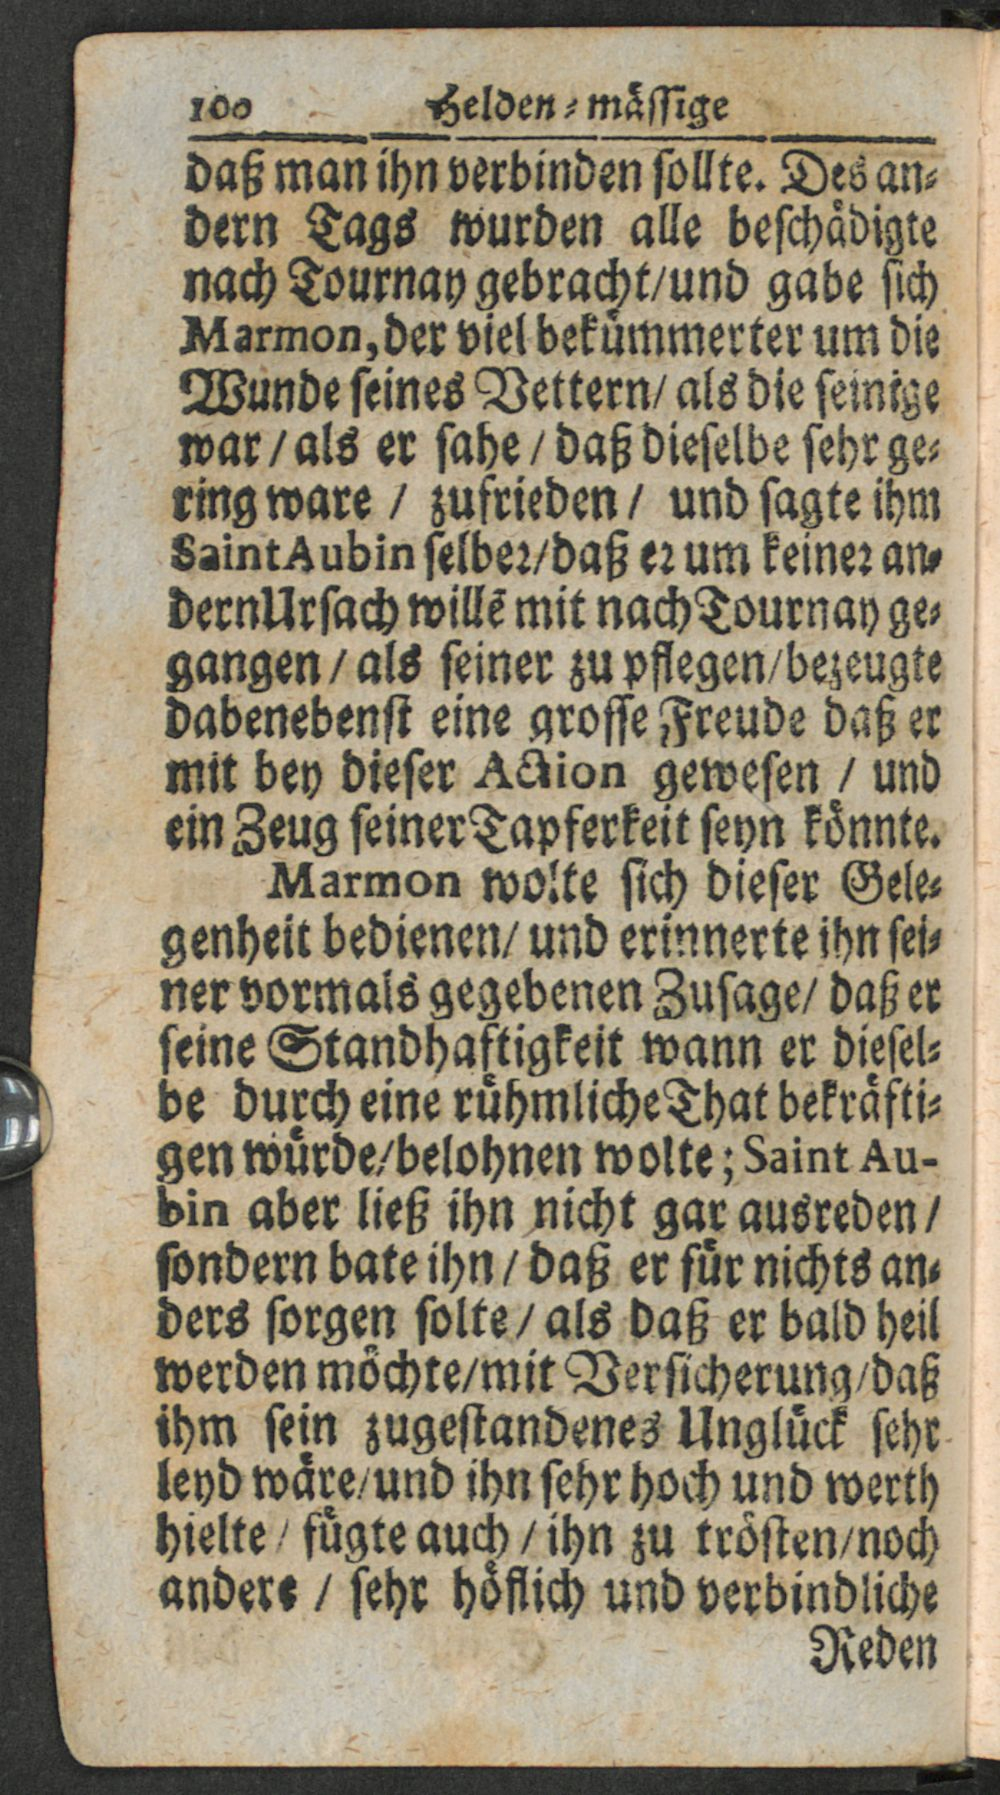 100 Helden⸗mäſſige
daß man ihn verbinden ſollte. Des an⸗
dern Tags wurden alle beſchädigte
nach Tournay gebracht/und gabe ſich
Marmon, der viel bekümmerter um die
Wunde ſeines Vettern/ als die ſeinige
war / als er ſahe / daß dieſelbe ſehr ge⸗
ring ware / zufrieden / und ſagte ihm
Saint Aubin ſelbeꝛ/daß eꝛ um keineꝛ an⸗
dern Urſach willē mit nach Tournay ge⸗
gangen / als ſeiner zu pflegen/bezeugte
dabenebenſt eine groſſe Freude daß er
mit bey dieſer Action geweſen / und
ein Zeug ſeiner Tapferkeit ſeyn könnte.
Marmon wolte ſich dieſer Gele⸗
genheit bedienen/ und erinnerte ihn ſei⸗
ner vormals gegebenen Zuſage/ daß er
ſeine Standhaftigkeit wann er dieſel⸗
be durch eine rühmliche That bekräfti⸗
gen würde/belohnen wolte; Saint Au-
bin aber ließ ihn nicht gar ausreden /
ſondern bate ihn / daß er für nichts an⸗
ders ſorgen ſolte / als daß er bald heil
werden möchte/mit Verſicherung/daß
ihm ſein zugeſtandenes Unglück ſehr
leyd wäre/und ihn ſehr hoch und werth
hielte / fügte auch / ihn zu tröſten/noch
andere / ſehr höflich und verbindliche
Reden